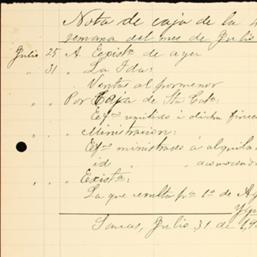 Nota de caja de la 4
semana del mes de Julio
Julio 25. A Exist.ª de ayer
" 31 " La Ida:
Ventas al pormenor
" " Por Caja de Sta Cat.
Ef.vo remitido á dicha finca
" " " Ministracion:
Ef.vo ministrado á alquila
id " acomodado
" " " Exist.ª:
La que resulta p.ª 1º de Ag
Ygu
Julio 31 de 19